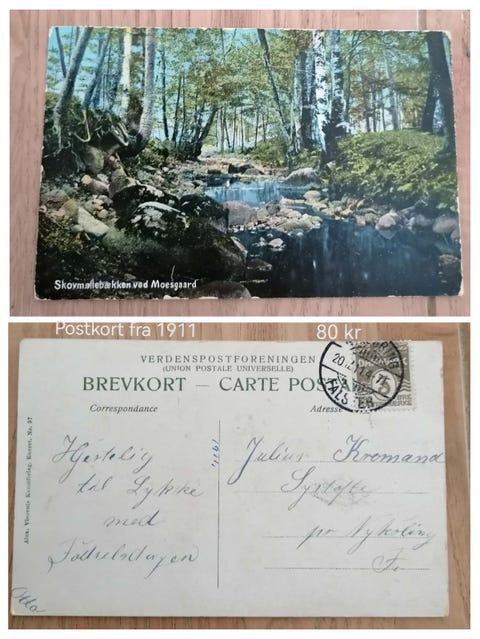 Skovmøllebækken ved Moesgaard
Postkort fra 1911 80 kr
VERDENSPOSTFORENINGEN
(UNION POSTALE UNIVERSELLE)
BREVKORT — CARTE POS
Correspondance Adresse
Alex. Vincents Kunstforlag. Eneret. No. 97
1911
Hjertelig
til Lykke
med
Födselsdagen
Julius Kromand
pr Nykøbing
F.
FALSTER